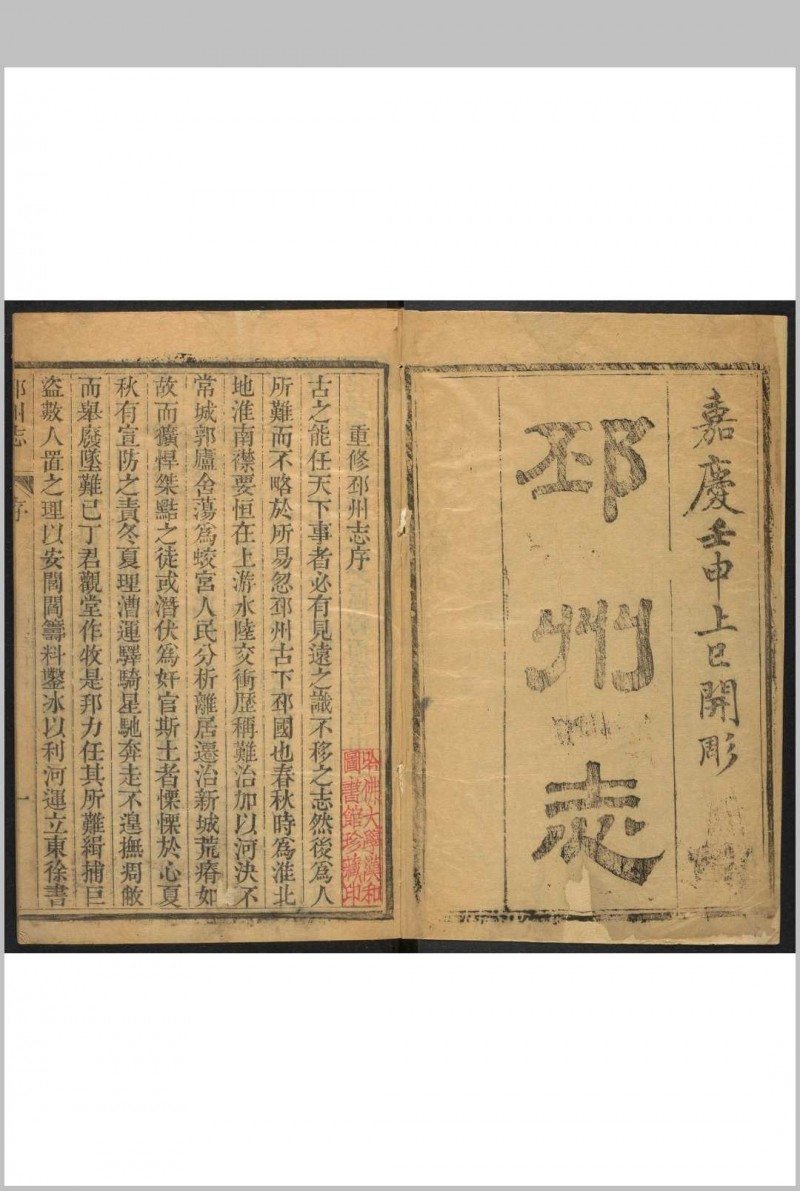 嘉慶壬申上巳開彫
邳州志
重修邳州志序
古之能任天下事者必有見遠之識不移之志然後爲人
所難而不略於所易忽邳州古下邳國也春秋時爲淮北
地淮南襟要恒在上游水陸交衝歷稱難治加以河決不
常城郭廬舍蕩爲蛟宮人民分析離居遷治新城荒瘠如
故而獷悍桀黠之徒或潛伏爲奸官斯土者慄慄於心夏
秋有宣防之責冬夏理漕運驛騎星馳奔走不遑撫凋敝
而舉廢墜難已丁君觀堂作牧是邦力任其所難緝捕巨
盜數人置之理以安閭閻籌料鑿冰以利河運立東徐書
邳州志
序
一
哈佛大學漢和
圖書館珍藏印